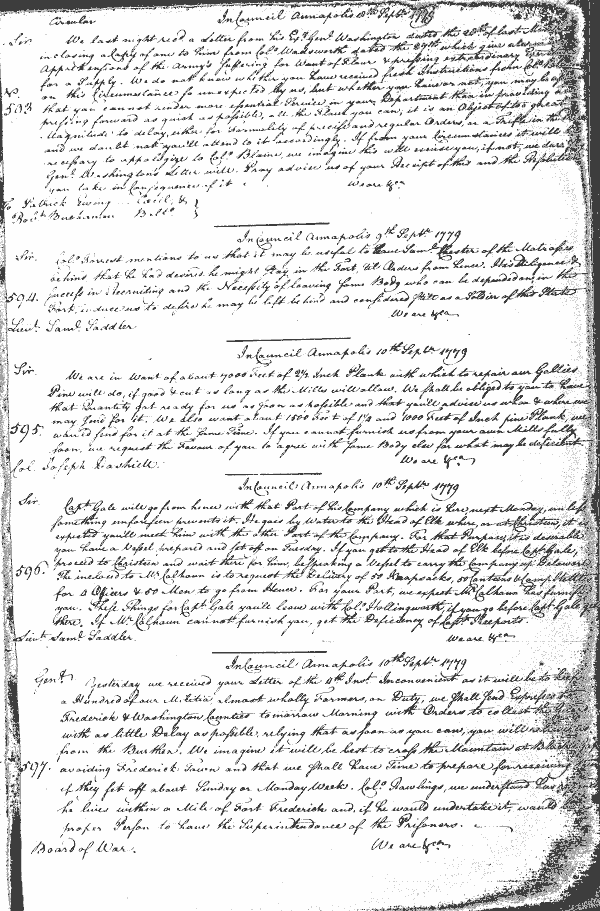 Circular In Council Annapolis 10th Septr 1779
Sir
We last night recd a Letter from his Exy Genl Washington dated the 28th of last Month
inclosing a Copy of one to him from Colo Wadsworth dated the 27th which give
Apprehensions of the Army's suffering for Want of Flour & pressing extraordinary
for a Supply. We do not know whether you have received fresh Instructions from Colo
on this Circumstance so unexpected by us, but whether you have or not, you may be
No. 593
that you cannot render more essential Service in your Department than in providing and
pressing forward as quick as possible, all the Flour you can, it is an Object of too great
Magnitude to delay, either for Formality of precise and regular Orders, or a Trifle in the
and we doubt not you'll attend to it accordingly. If from your Circumstances it will be
necessary to apologize to Colo Blaine, we imagine this will excuse you, if not, we dare
Genl Washington's Letter will. Pray advise us of your Receipt of this and the Resolution
you take in Consequence of it. We are &ca
To Patrick Ewing Cecil, &
Robt Buchanan Balto
In Council Annapolis 9th Septr 1779
Sir.
Colo Forrest mentions to us that it may be useful to have Saml of the Matrosses
behind that he had desired he might stay in the Fort, till Orders from hence. His Diligence &
success in Recruiting and the Necessity of leaving some Body who can be depended on, in the
594.
Fort, induce us to desire he may be left behind and considered still as a Soldier of this State
We are &ca
Lieut. Saml. Saddler
In Council Annapolis 10th Septr 1779
Sir.
We are in Want of about 7000 Feet of 2½ Inch Plank with which to repair our Gallies
Pine will do, if good & cut as long as the Mills will allow. We shall be obliged to you to have
that Quantity got ready for us as soon as possible and that you'll advise us when & where we
may send for it. We also want about 1500 Feet of 1¼ and 1000 Feet of Inch pine Plank, we
595.
would send for it at the same Time. If you cannot furnish us from your own Mills fully
soon, we request the Favour of you to agree with some Body else for what may be deficient
We are &ca
Col. Joseph Dashiell
In Council Annapolis 10th Septr 1779
Sir
Capt Gale will go from hence with that Part of his Company which is here, next Monday, unless
something unforeseen prevents it. He goes by Water to the Head of Elk where, or at Christeen, it is
expected you'll meet him with the other Part of the Company. For that Purpose, it is desirable
you have a Vessel prepared and set off on Tuesday. If you get to the Head of Elk before Capt Gale,
596.
proceed to Christeen and wait there for him, bespeaking a Vessel to carry the Company up Delaware
The inclosed to Mr Calhoun is to request the Delivery of 55 Knapsacks, 55 Canteens & Camp Kettles
for 4 Officers & 50 Men to go from hence. For your Part, we expect Mr Calhoun has furnished
you. These Things for Capt Gale you'll leave with Colo Hollingsworth, if you go before Capt Gale
there. If Mr Calhoun cannot furnish you, get the Deficiency of Capt Keeports.
We are &ca
Lieut Saml Saddler.
In Council Annapolis 10th Septr 1779
Gent.
Yesterday we received your Letter of the 4th Inst. Inconvenient as it will be to keep
a Hundred of our Militia almost wholly Farmers, on Duty, we shall send Expresses to
Frederick & Washington Counties tomorrow Morning with Orders to collect the
with as little Delay as possible, relying that as soon as you can, you will relieve
from the Burthen. We imagine it will be best to cross the Mountain at
597.
avoiding Frederick Town and that we shall have Time to prepare for receiving
if they set off about Sunday or Monday Week. Colo Rawlings, we understand has
he lives within a Mile of Fort Frederick and, if he would undertake it, would
proper Person to have the Superintendance of the Prisoners.
Board of War. We are &ca